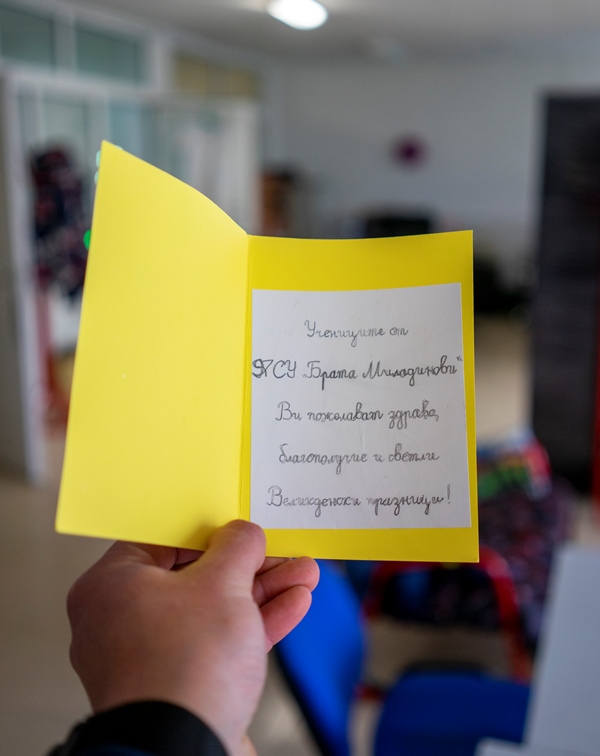 Учениците от
ПСУ „Брата Миладинови“
Ви пожелават здраве,
благополучие и светли
Великденски празници!